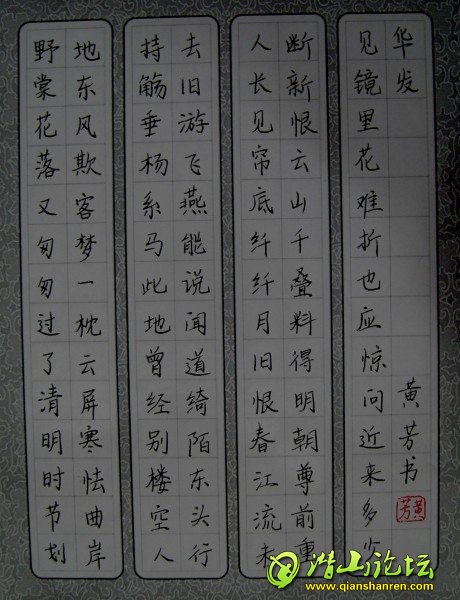 野棠花落又匆匆过了清明时节划
地东风欺客梦一枕云屏寒怯曲岸
持觞垂杨系马此地曾经别楼空人
去旧游飞燕能说闻道绮陌东头行
人长见帘底纤纤月旧恨春江流未
断新恨云山千叠料得明朝尊前重
见镜里花难折也应惊问近来多少
华发
黄芳书
黄芳
潜山论坛
www.qianshanren.com